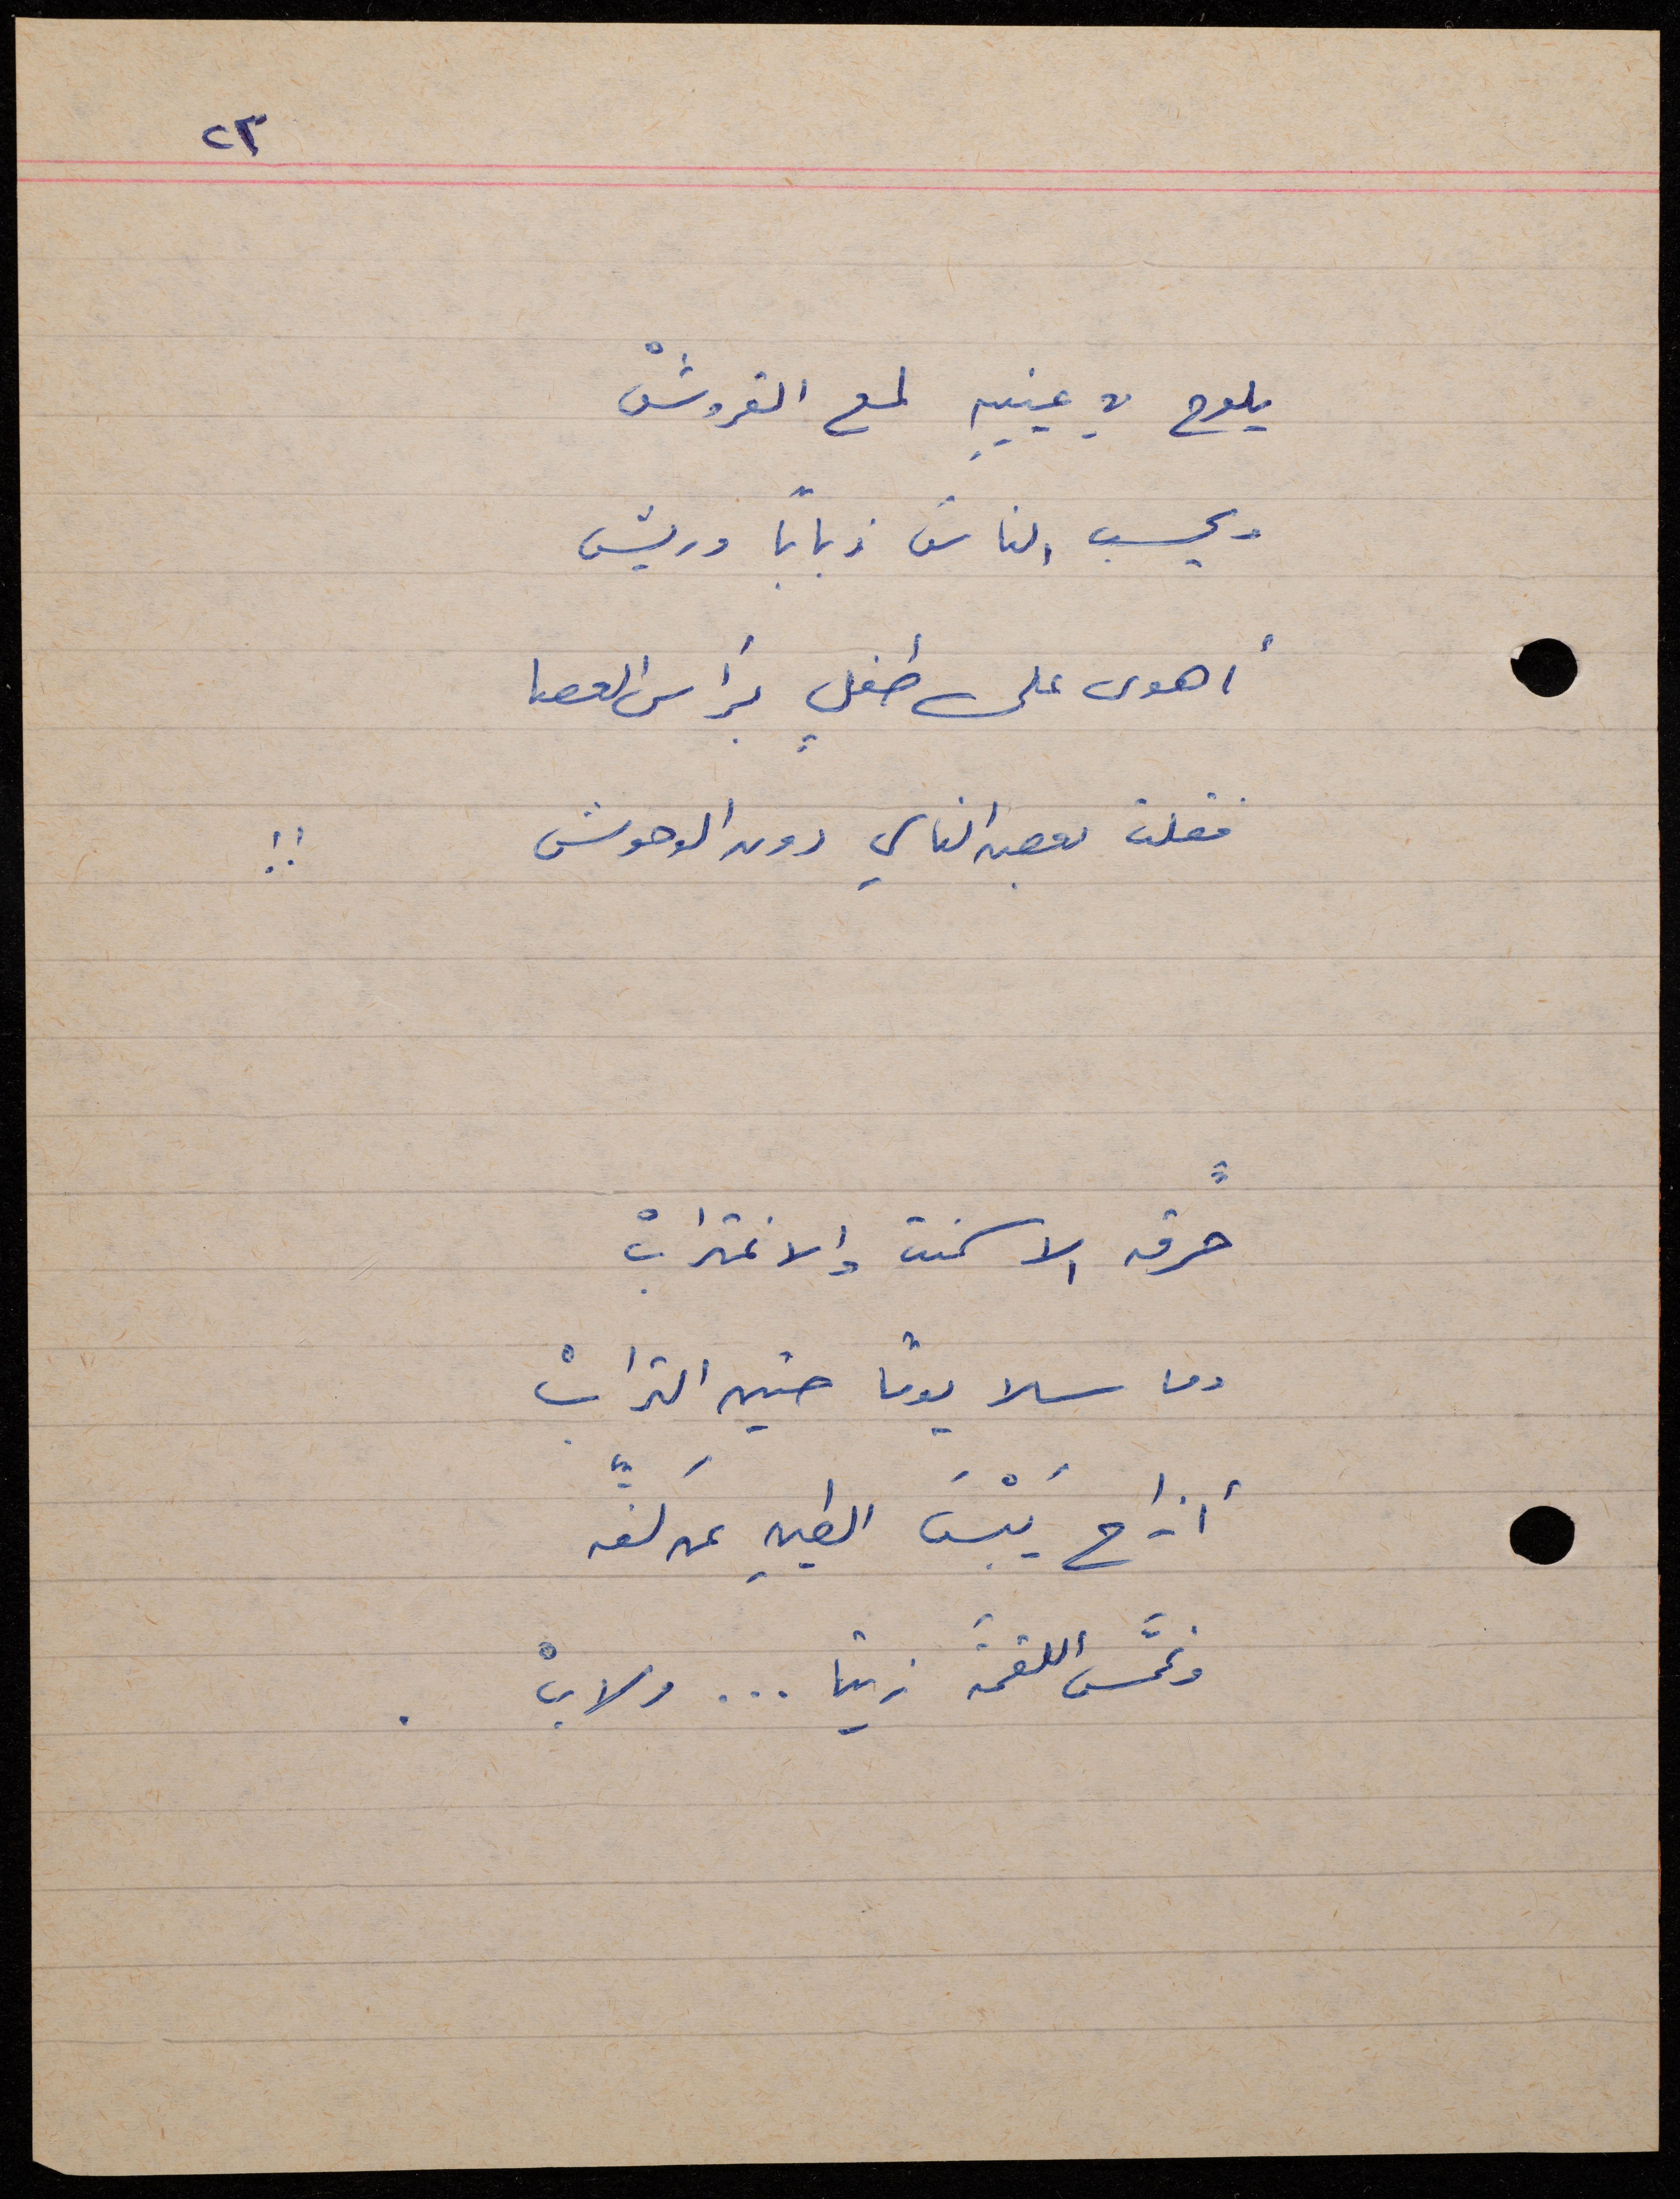 ٢٣
يلوح في عينيهِ لمع القروشْ
ويحسب الناسَ ذبابًا وريش
أهوى على طفلٍ برأس العصا
فقلت بعض الناسِ دون الوحوش !!
حرّقه الاسمنت والاغترابْ
وما سلا يومًا حنين الترابْ
أزاح يَبْسَ الطينِ عن كفّه
وغمَّس اللقمةَ زيتا ... ولابْ .